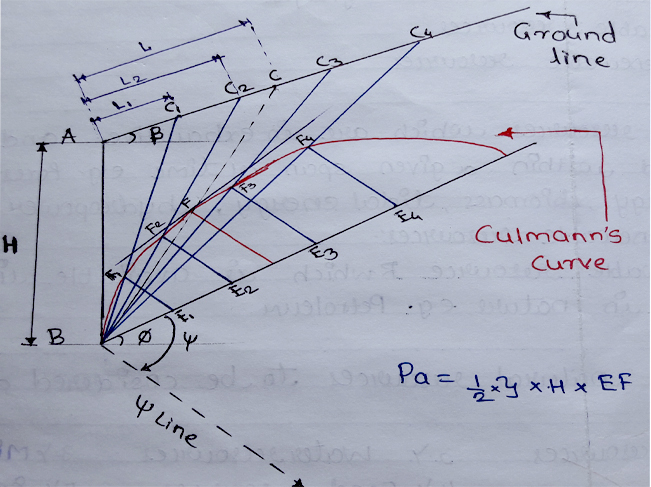 C4
Ground
line
L
C3
L2
C
C2
L1
C1
A
β
F4
F3
F
F2
F1
E4
Culmann's
curve
E3
E2
E1
H
B
φ
ψ
ψ Line
Pa = 1/2 × γ × H × EF